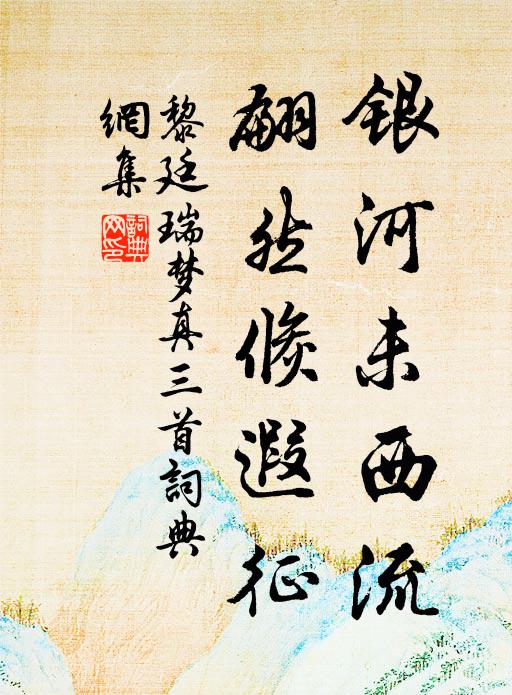 银河未西流
翩然倏遐征
黎廷瑞梦真三首詞典
網集
詞典
网印